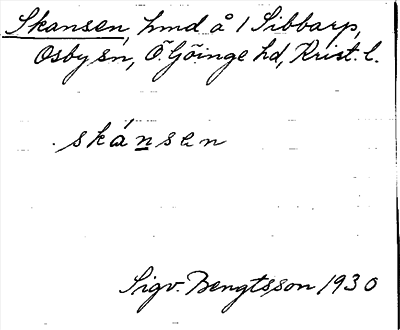 Skansen, hmd å 1 Sibbarp,
Osby sn, Ö. Göinge hd, Krist. l.
skánsen
Sigv. Bengtsson 1930